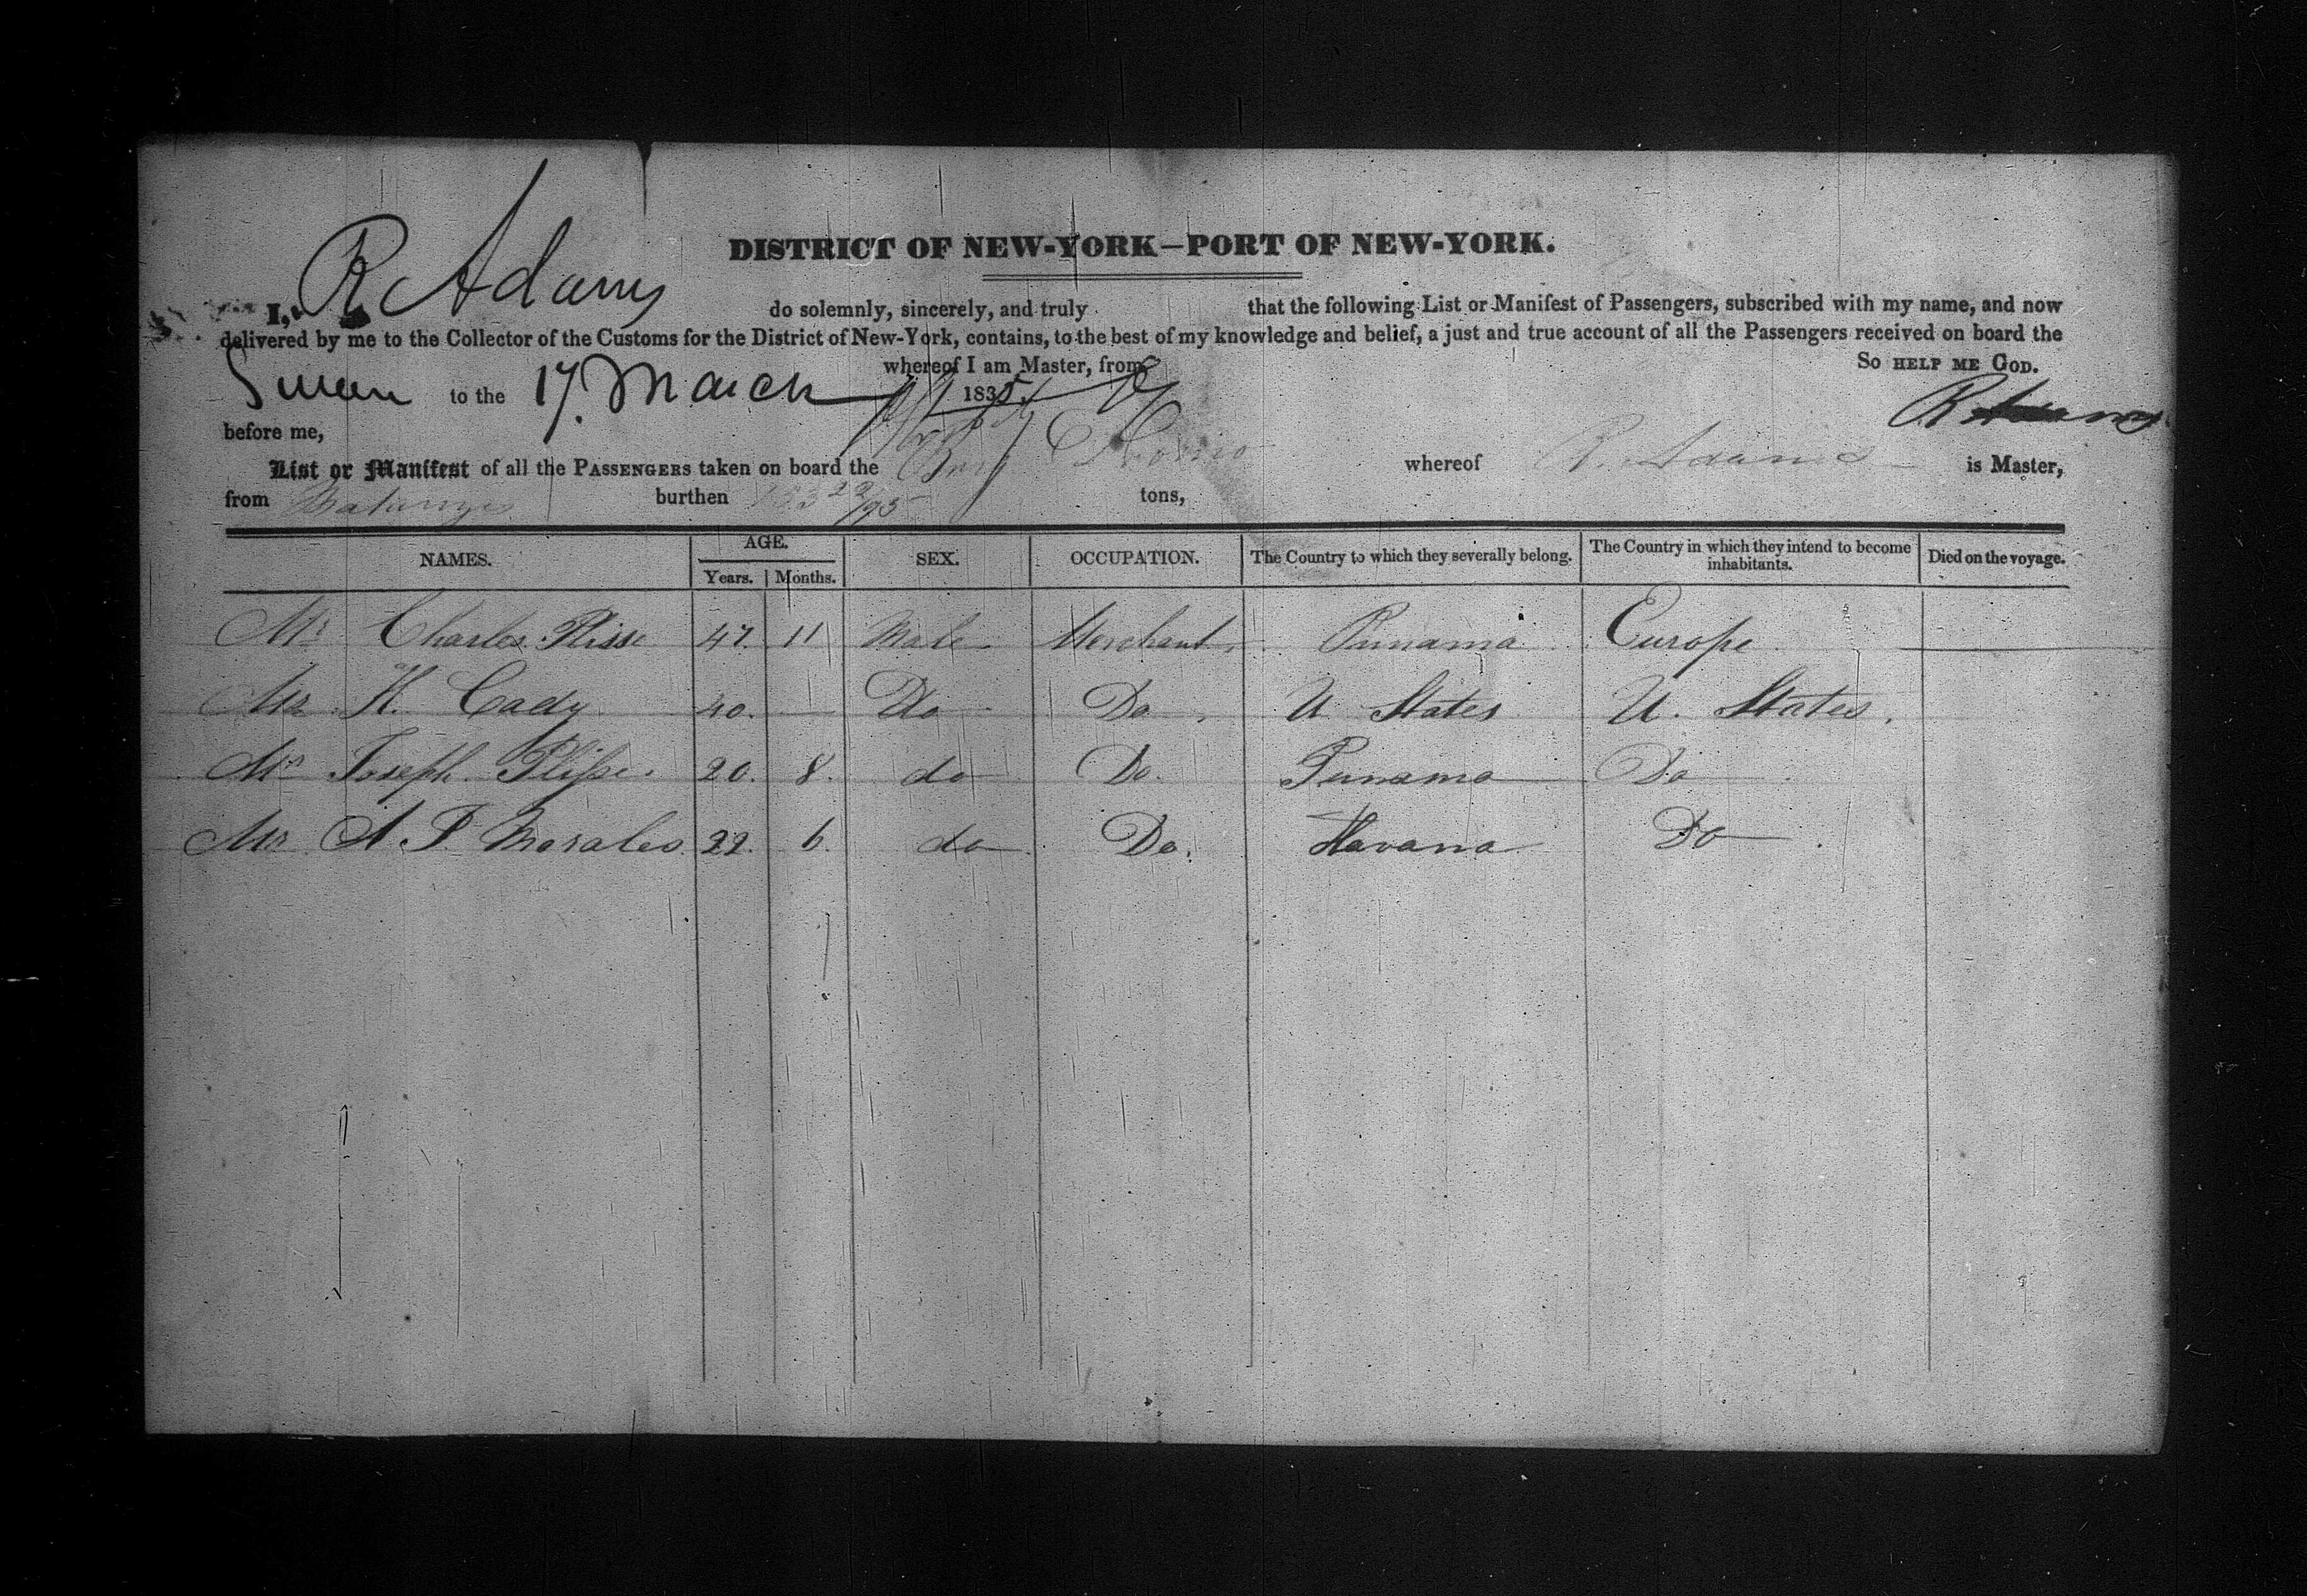 DISTRICT OF NEW-YORK—PORT OF NEW-YORK.
I, R Adams do solemnly, sincerely, and truly that the following List or Manifest of Passengers, subscribed with my name, and now
delivered by me to the Collector of the Customs for the District of New-York, contains, to the best of my knowledge and belief, a just and true account of all the Passengers received on board the
whereof I am Master, from So HELP ME GOD.
to the 17. March 1835. R Adams
before me,
List or Manifest of all the PASSENGERS taken on board the Brig whereof R. Adams is Master,
from burthen tons,
NAMES. AGE. Years. Months. SEX. OCCUPATION. The Country to which they severally belong. The Country in which they intend to become inhabitants. Died on the voyage.
Mr Charles Plisse 47. 11 Male Merchant Panama Europe
Mr H. Cady 40. Do Do U States U. States.
Mr Joseph Plisse 20. 8. do Do. Panama Do
Mr A. P. Morales 22. 6. do Do. Havana Do